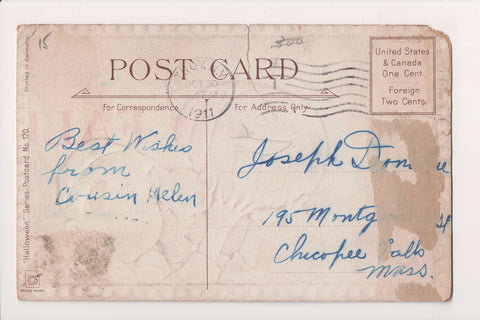 15
300
POST CARD
United States
& Canada
One Cent
Foreign
Two Cents
For Correspondence
For Address Only
1911
Printed in Germany
"Halloween" Series-Postcard No. 120.
TRADE MARK
Best Wishes
from
Cousin Helen
Joseph
195
Chicopee Falls
Mass.